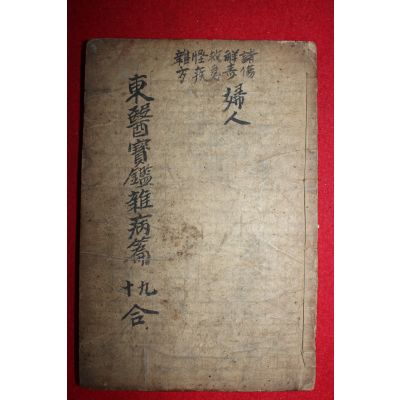 諸傷
解毒
救急
怪疾
雜方
婦人
東醫寶鑑雜病篇
九十合